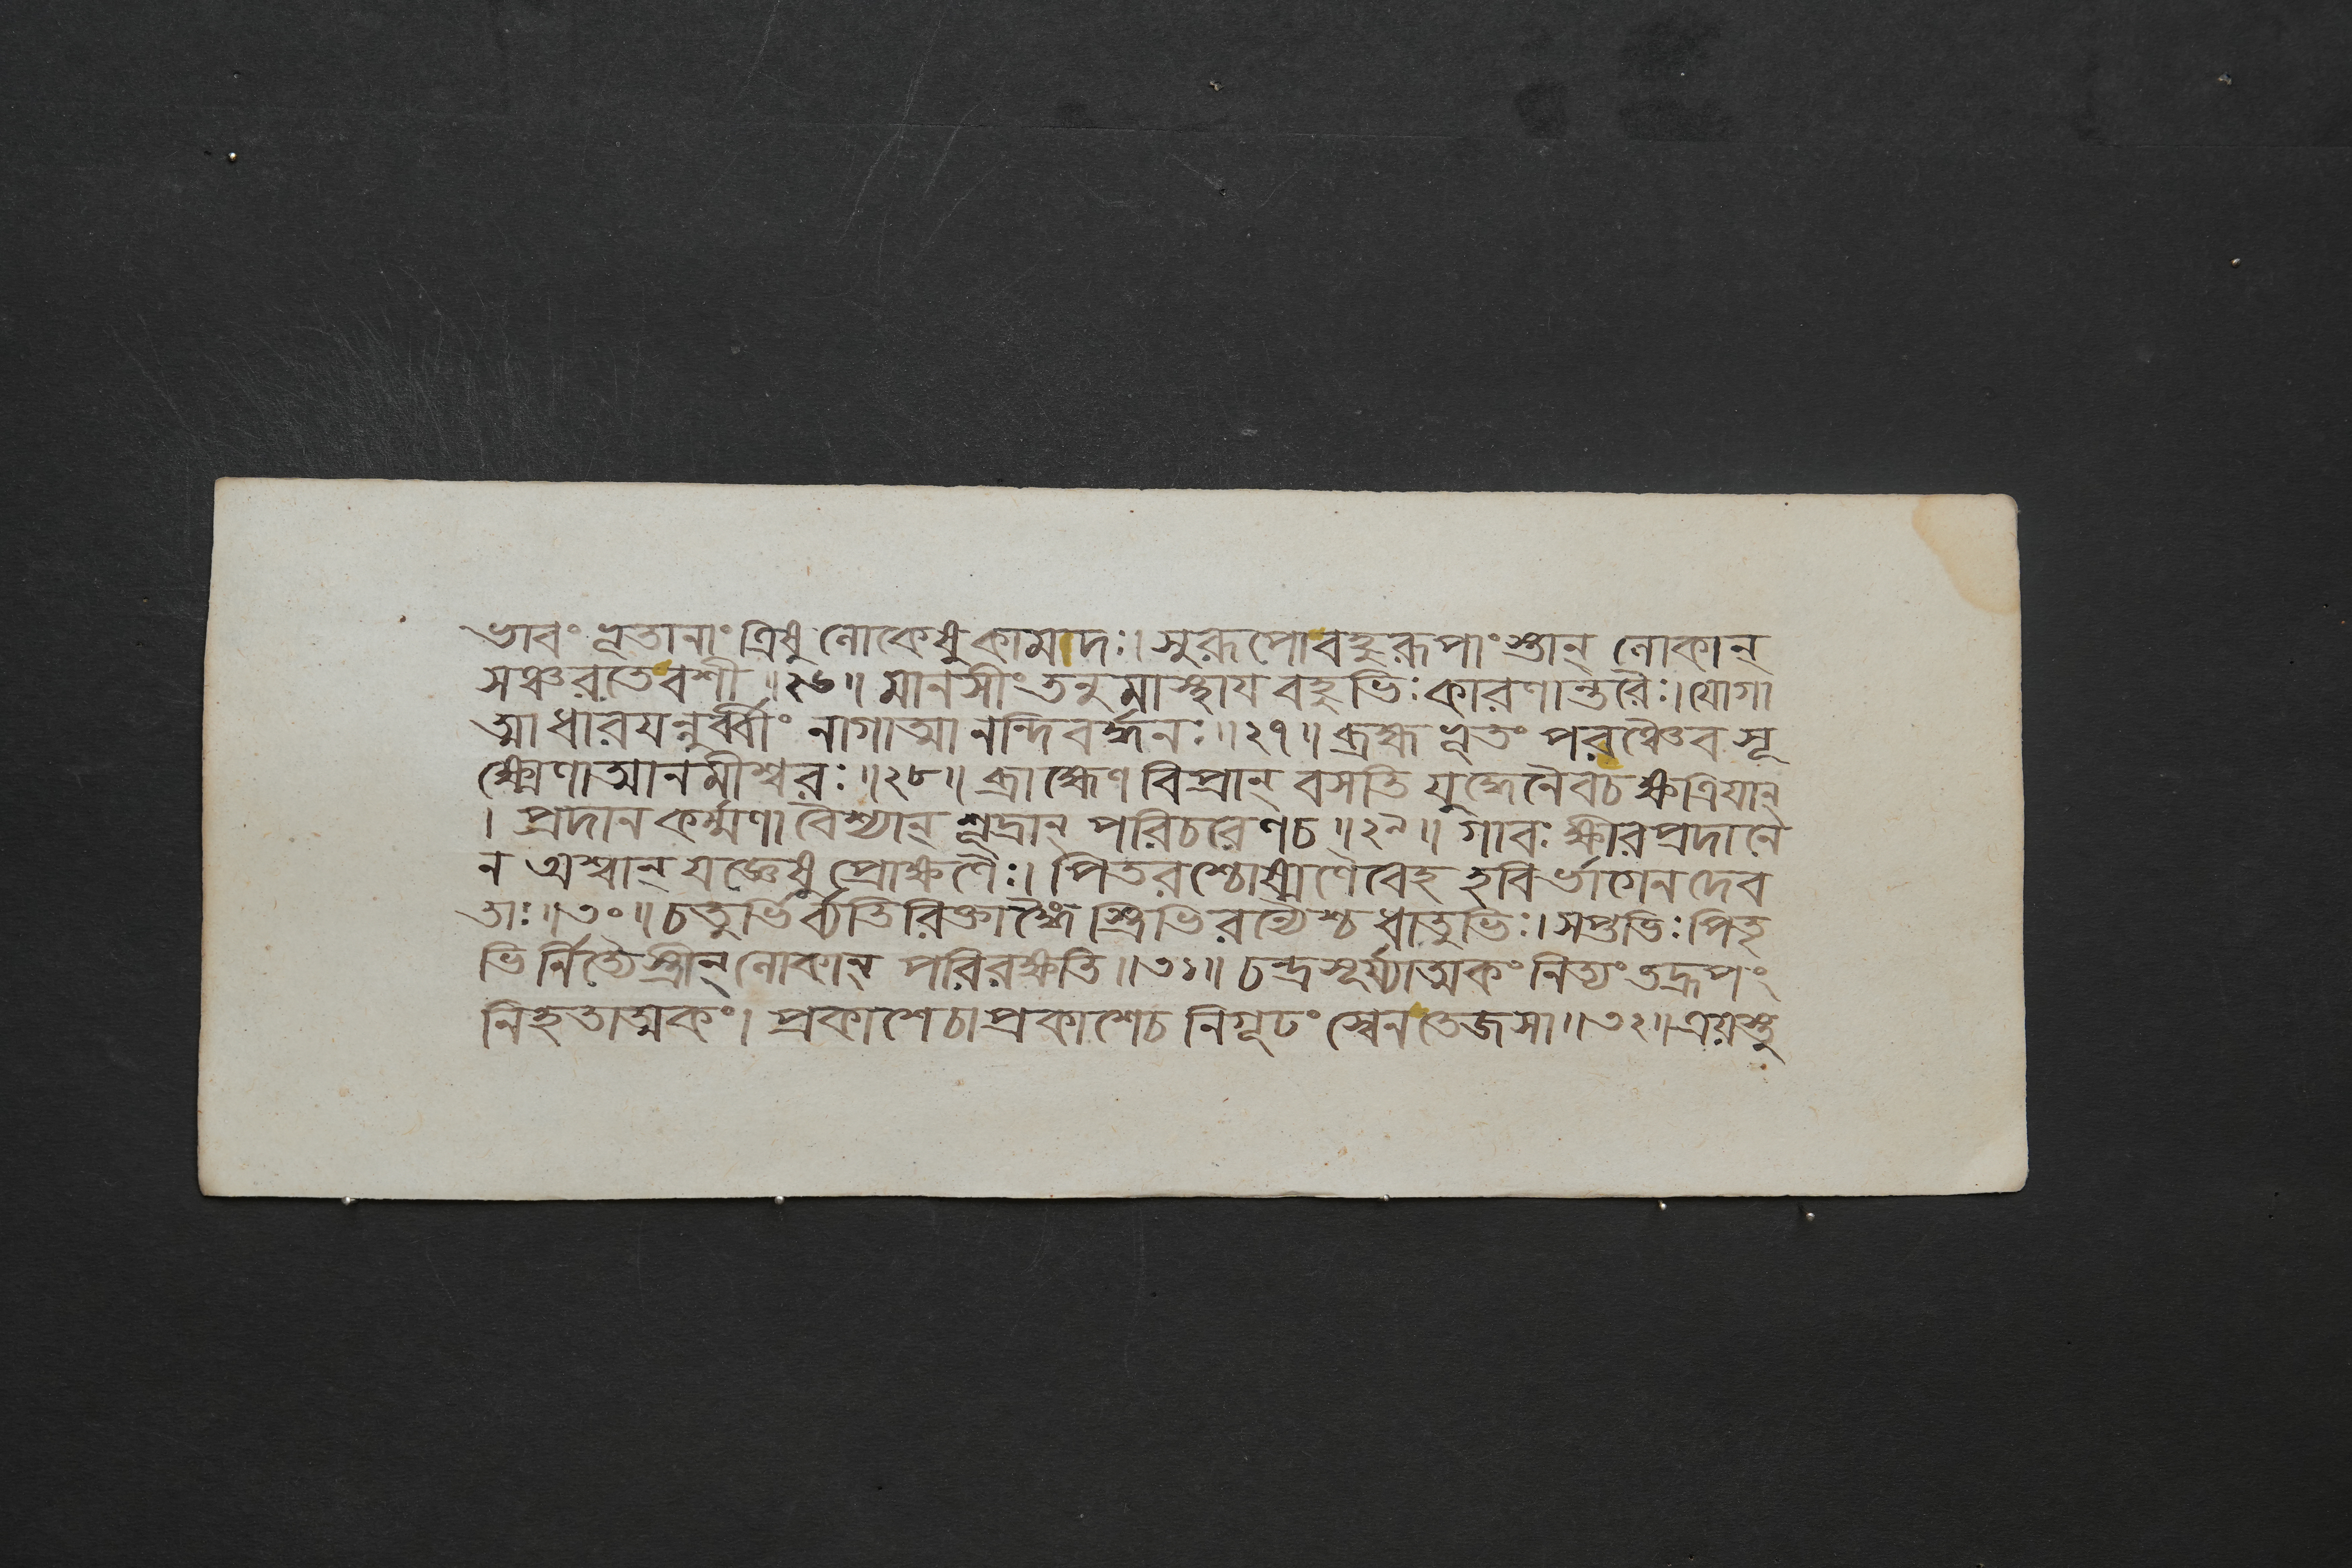 ভাবং ভূতানাং ত্রিষু লোকেষু কামদঃ। সুরূপো বহুরূপাংস্তান্ লোকান্
সঞ্চরতে বশী॥২৬॥ মানসীং তনুমাস্থায বহুভিঃ কারণান্তরৈঃ। যোগা
ত্মা ধারযন্নুর্ব্বীং নাগাত্মা নন্দিবর্দ্ধনঃ॥২৭॥ ব্রহ্ম ভূতং পরঞ্চৈব সূ
ক্ষ্মেণাত্মানমীশ্বরঃ॥২৮॥ ব্রাহ্মেণ বিপ্রান্ বসতি যুদ্ধেনৈবচ ক্ষত্রিযান্
। প্রদানকর্ম্মণা বৈশ্যান্ শূদ্রান্ পরিচরেণচ॥২৯॥ গাবঃ ক্ষীরপ্রদানে
ন অশ্বান্ যজ্ঞেষু প্রোক্ষণৈঃ। পিতরশ্চোষ্মণৈবেহ হবির্ভাগেন দেব
তাঃ॥৩০॥ চতুর্ভির্ব্যতিরিক্তাঙ্গৈ স্ত্রিভিরন্যৈশ্চ ধাতুভিঃ। সপ্তভিঃ পিতৃ
ভির্নিত্যৈস্ত্রীন্ লোকান্ পরিরক্ষতি॥৩১॥ চন্দ্রসূর্য্যাত্মকং নিত্যং তদ্রূপং
নিহতাত্মকং। প্রকাশেচাপ্রকাশেচ নিগূঢং স্বেন তেজসা॥৩২॥ এয়স্তু